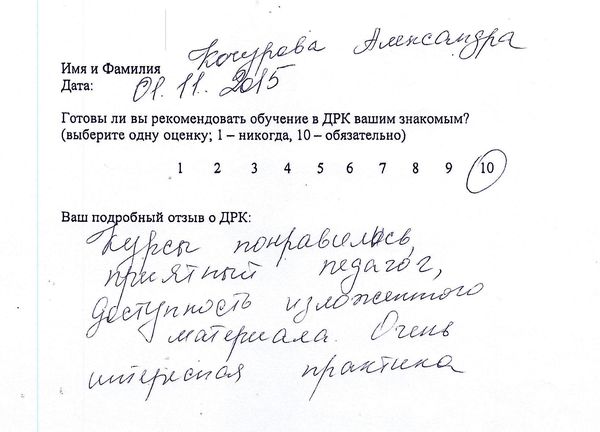 Имя и Фамилия Кочурова Александра
Дата: 01.11.2015
Готовы ли вы рекомендовать обучение в ДРК вашим знакомым?
(выберите одну оценку; 1 – никогда, 10 – обязательно)
1 2 3 4 5 6 7 8 9 10
Ваш подробный отзыв о ДРК:
Курсы понравились,
приятный педагог,
доступность изложенного
материала. Очень
интересная практика